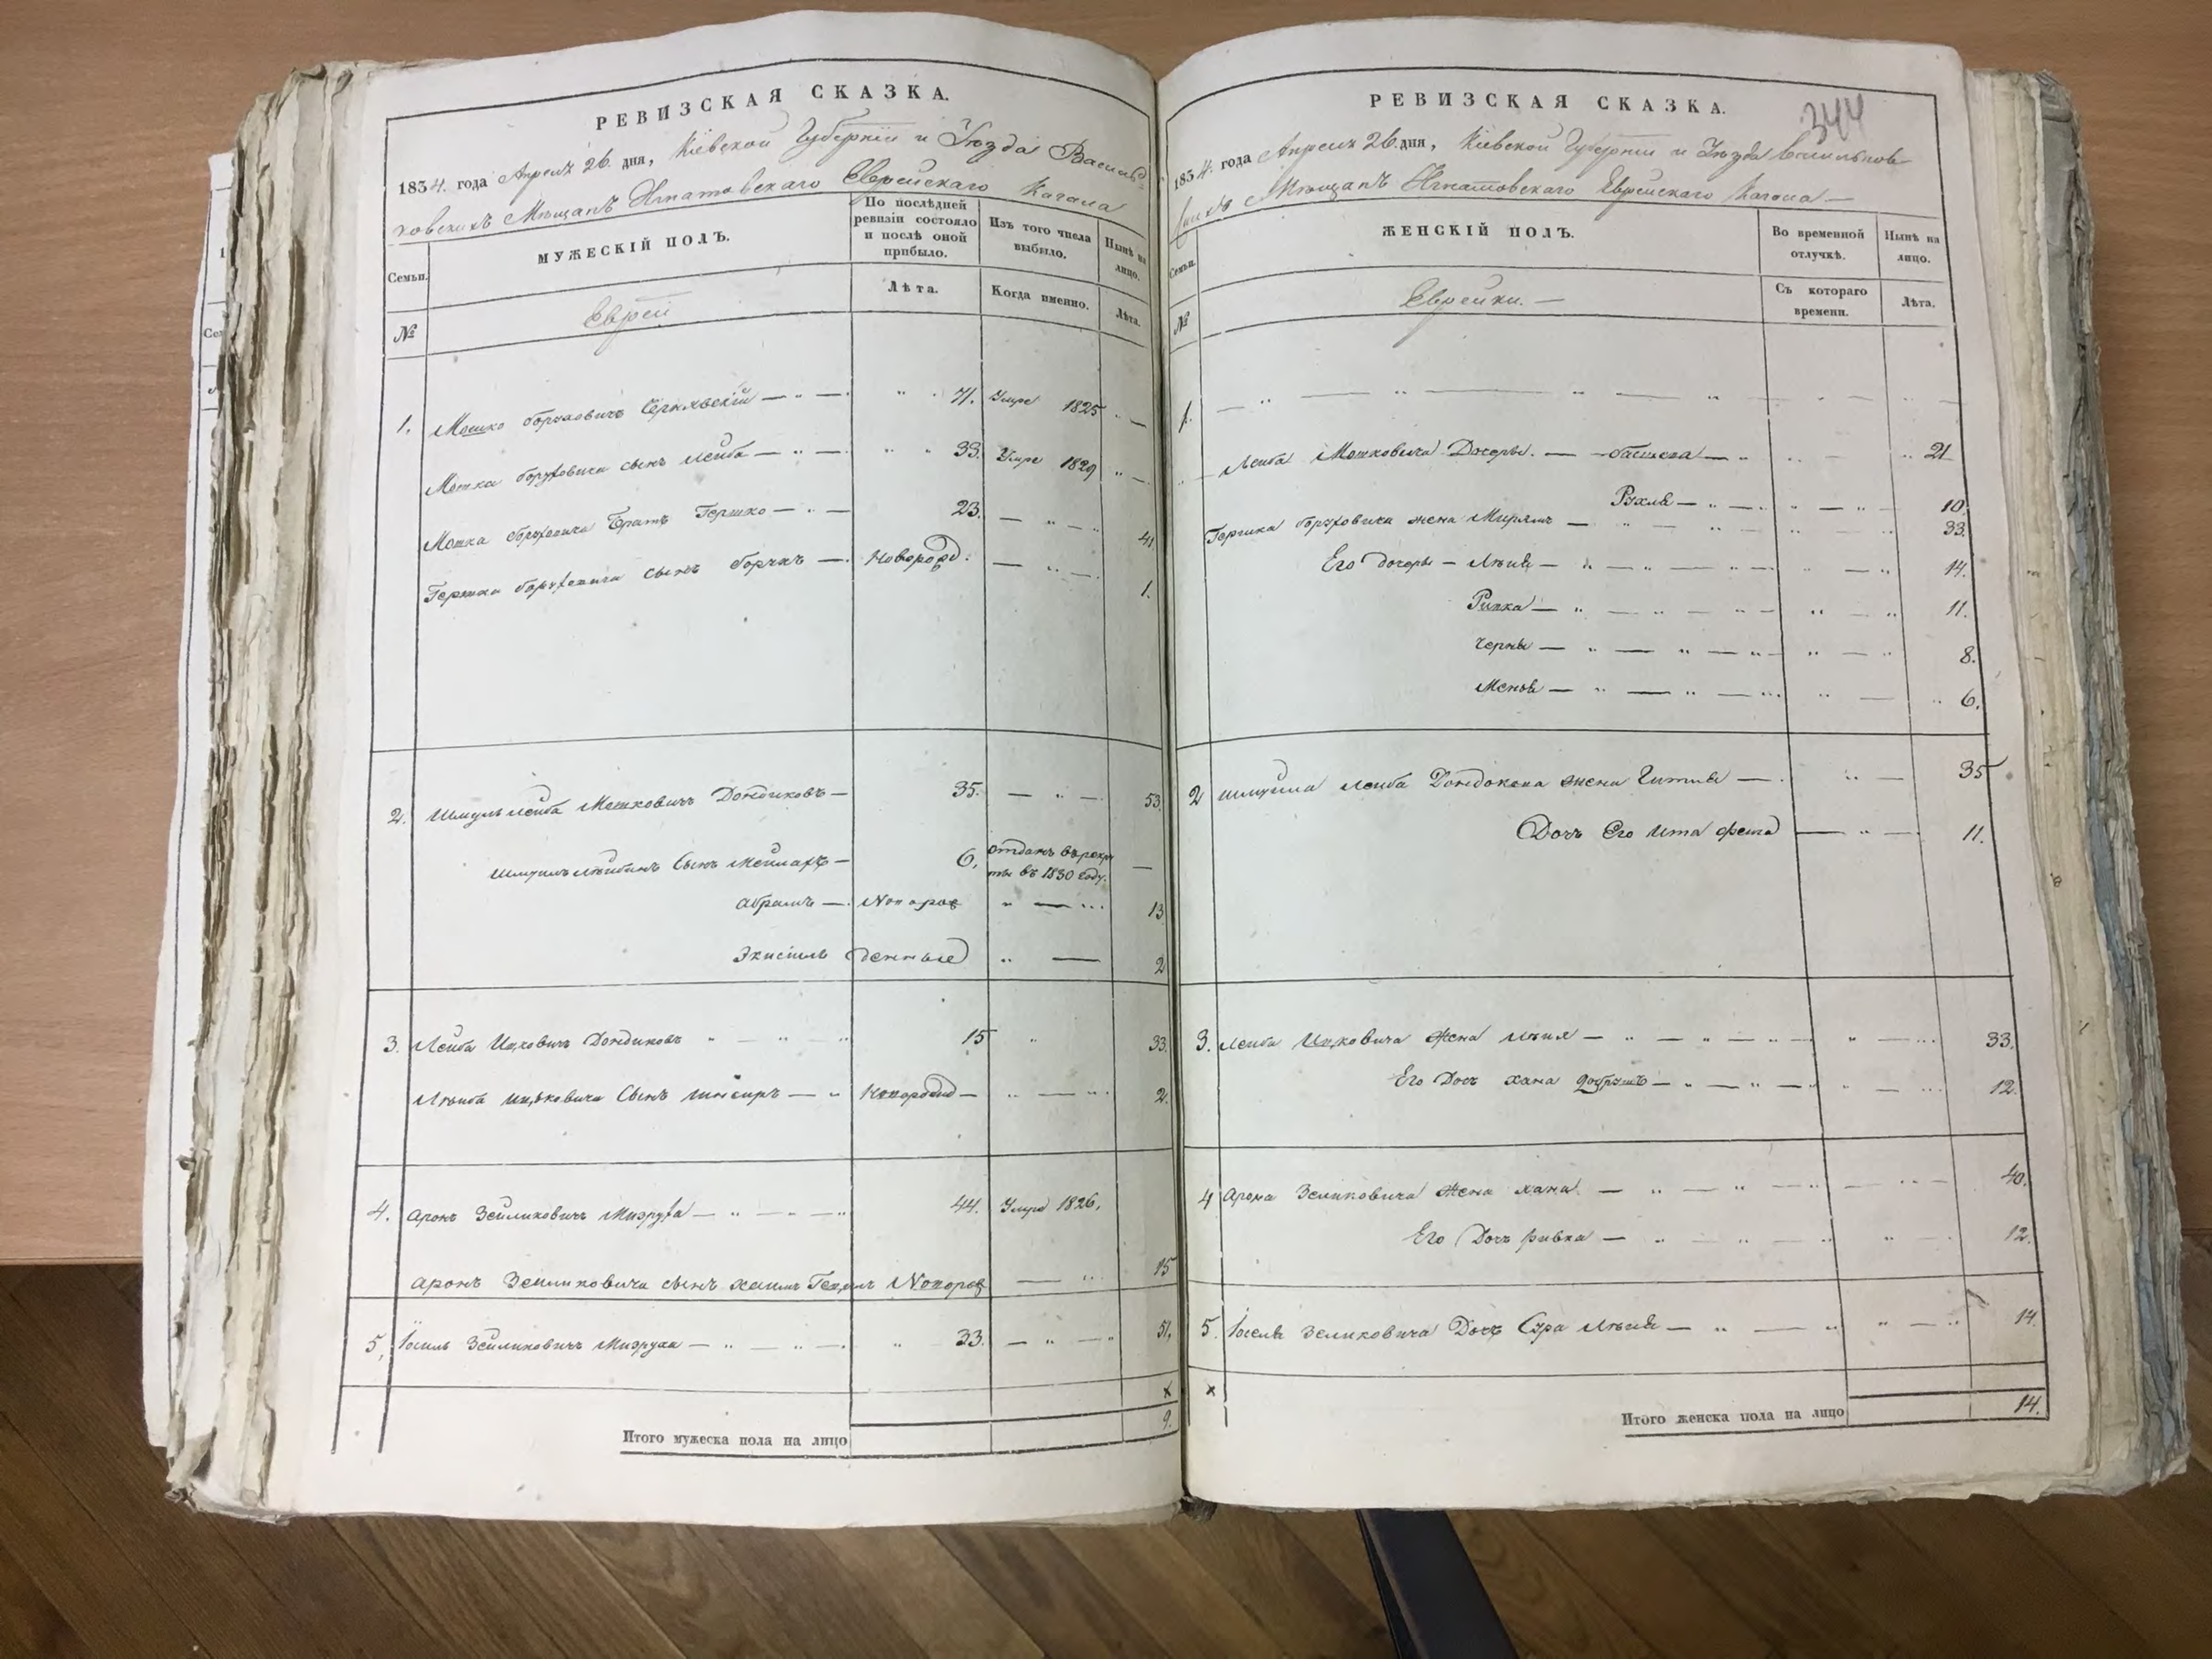 РЕВИЗСКАЯ СКАЗКА.
1834. года Апреля 26. дня, Кіевской Губерніи и Уѣзда Василь-
ковскихъ Мѣщанъ Игнатовскаго Еврейскаго Кагала
Семьи.
МУЖЕСКІЙ ПОЛЪ.
По послѣдней ревизіи состояло и послѣ оной прибыло.
Изъ того числа выбыло.
Нынѣ на лицо.
№
Еврей
Лѣта.
Когда именно.
Лѣта.
1. Мошко Боруховичъ 71. Умре 1825
Мошка Боруховича сынъ Лейба 33. Умре 1829
Мошка Боруховича Братъ Гершко 23. 41
Гершка Боруховича сынъ Новорожд. 1.
2. Шмуль Лейба Мошковичъ Дондиковъ 35. 53.
Шмуль Лейбинъ Сынъ Мейлахъ 6. отданъ въ рекру
ты въ 1830 году.
Абрамъ Новорож 13
Экисіиль денные 2
3. Лейба Ицковичъ Дондиковъ 15 33.
Лѣйба Ицьковича Сынъ 2.
4. Аронъ Зейликовичъ Мизруха 44. Умре 1826.
Аронъ Зеиликовича сынъ Хаимъ Новорож 15
5. Іосиль Зейликовичъ Мизруха 33. 51.
х
Итого мужеска пола на лицо 9.
РЕВИЗСКАЯ СКАЗКА.
344
1834. года Апреля 26. дня, Кіевской Губерніи и Уѣзда Васильков-
скихъ Мѣщанъ Игнатовскаго Еврейскаго Кагала
Семьи.
ЖЕНСКІЙ ПОЛЪ.
Во временной отлучкѣ.
Нынѣ на лицо.
№
Еврейки.
Съ котораго времени.
Лѣта.
1.
Лейба Мошковича Дочери. Басшева 21
Рухля 10.
Гершка Боруховича жена Мирямъ 33.
Его дочери Лѣия 14.
Ривка 11.
Черны 8.
Меня 6.
2 Шмуила Лейба Дондокова жена Гитля 35
Дочь Его Ита фейга 11.
3. Лейба Ицковича жена Лѣия 33.
Его Дочь хана 12.
4 Арона Зеликовича жена хана 40.
Его Дочь ривка 12.
5. Іоселя Зеликовича Дочь Сура Лѣия 14.
х
Итого женска пола на лицо 14.